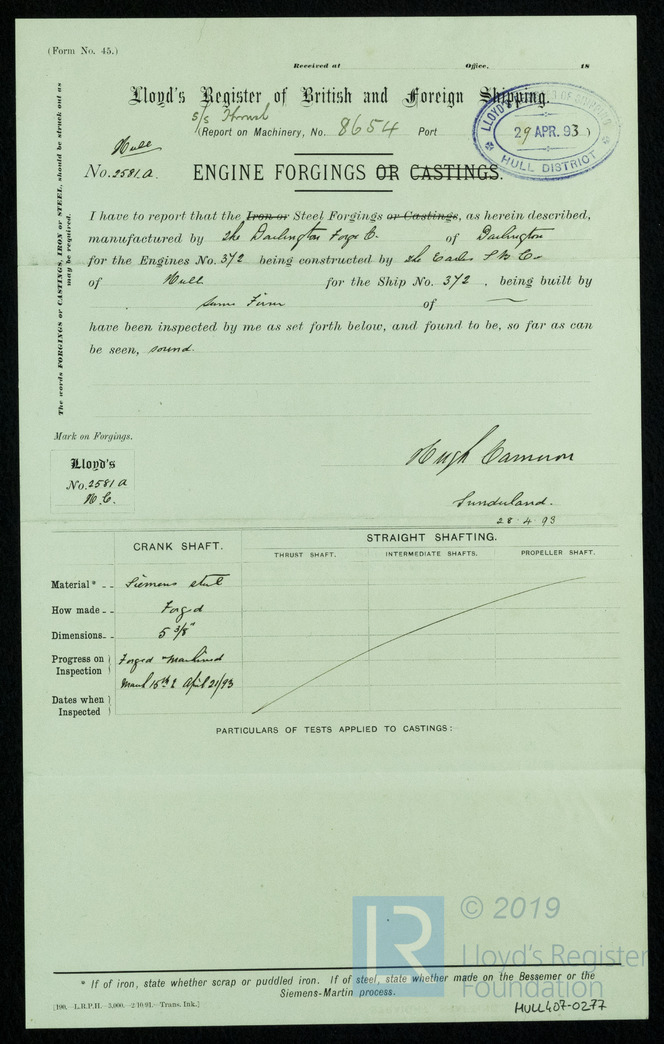 (Form No. 45.)
Received at Office, 18
Lloyd's Register of British and Foreign Shipping.
s/s Thrush
(Report on Machinery, No. 8654 Port )
LLOYD'S
29 APR. 93
HULL DISTRICT
Hull
No. 2581.A. ENGINE FORGINGS OR CASTINGS.
The words FORGINGS or CASTINGS, IRON or STEEL, should be struck out as
may be required.
I have to report that the Iron or Steel Forgings or Castings, as herein described,
manufactured by The Darlington Forge Co. of Darlington
for the Engines No. 372 being constructed by The Earles S B Co
of Hull for the Ship No. 372 , being built by
Same Firm of —
have been inspected by me as set forth below, and found to be, so far as can
be seen, sound.
Mark on Forgings.
Lloyd's
No. 2581 A
H.C.
Hugh Cameron
Sunderland.
28.4.93
CRANK SHAFT.
STRAIGHT SHAFTING.
THRUST SHAFT. INTERMEDIATE SHAFTS. PROPELLER SHAFT.
Material* - - Siemens steel
How made - - Forged
Dimensions - - 5 3/8"
Progress on Inspection Forged & Machined
Dates when Inspected March 15th & April 21/93
PARTICULARS OF TESTS APPLIED TO CASTINGS:
LR
© 2019
Lloyd's Register
Foundation
* If of iron, state whether scrap or puddled iron. If of steel, state whether made on the Bessemer or the
Siemens-Martin process.
[190.—L.R.P.H.—5,000.—2/10/91.—Trans. Ink.]
HULL407-0277